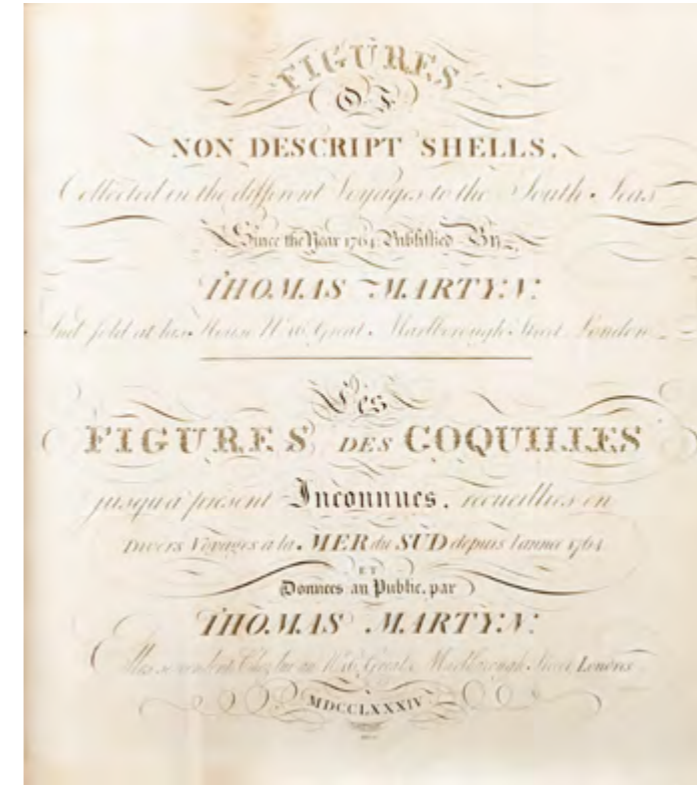 FIGURES
OF
NON DESCRIPT SHELLS,
Collected in the different Voyages to the South Seas
Since the Year 1764 Published By
THOMAS MARTYN.
And sold at his House N.16 Great Marlborough Street London
Les
FIGURES DES COQUILLES
jusqu'a present Inconnues. recueillies en
Divers Voyages a la MER du SUD depuis l'annee 1764
ET
Donnees au Public, par
THOMAS MARTYN.
Elles se vendent Chez lui au N.16 Great Marlborough Street Londres
MDCCLXXXIV